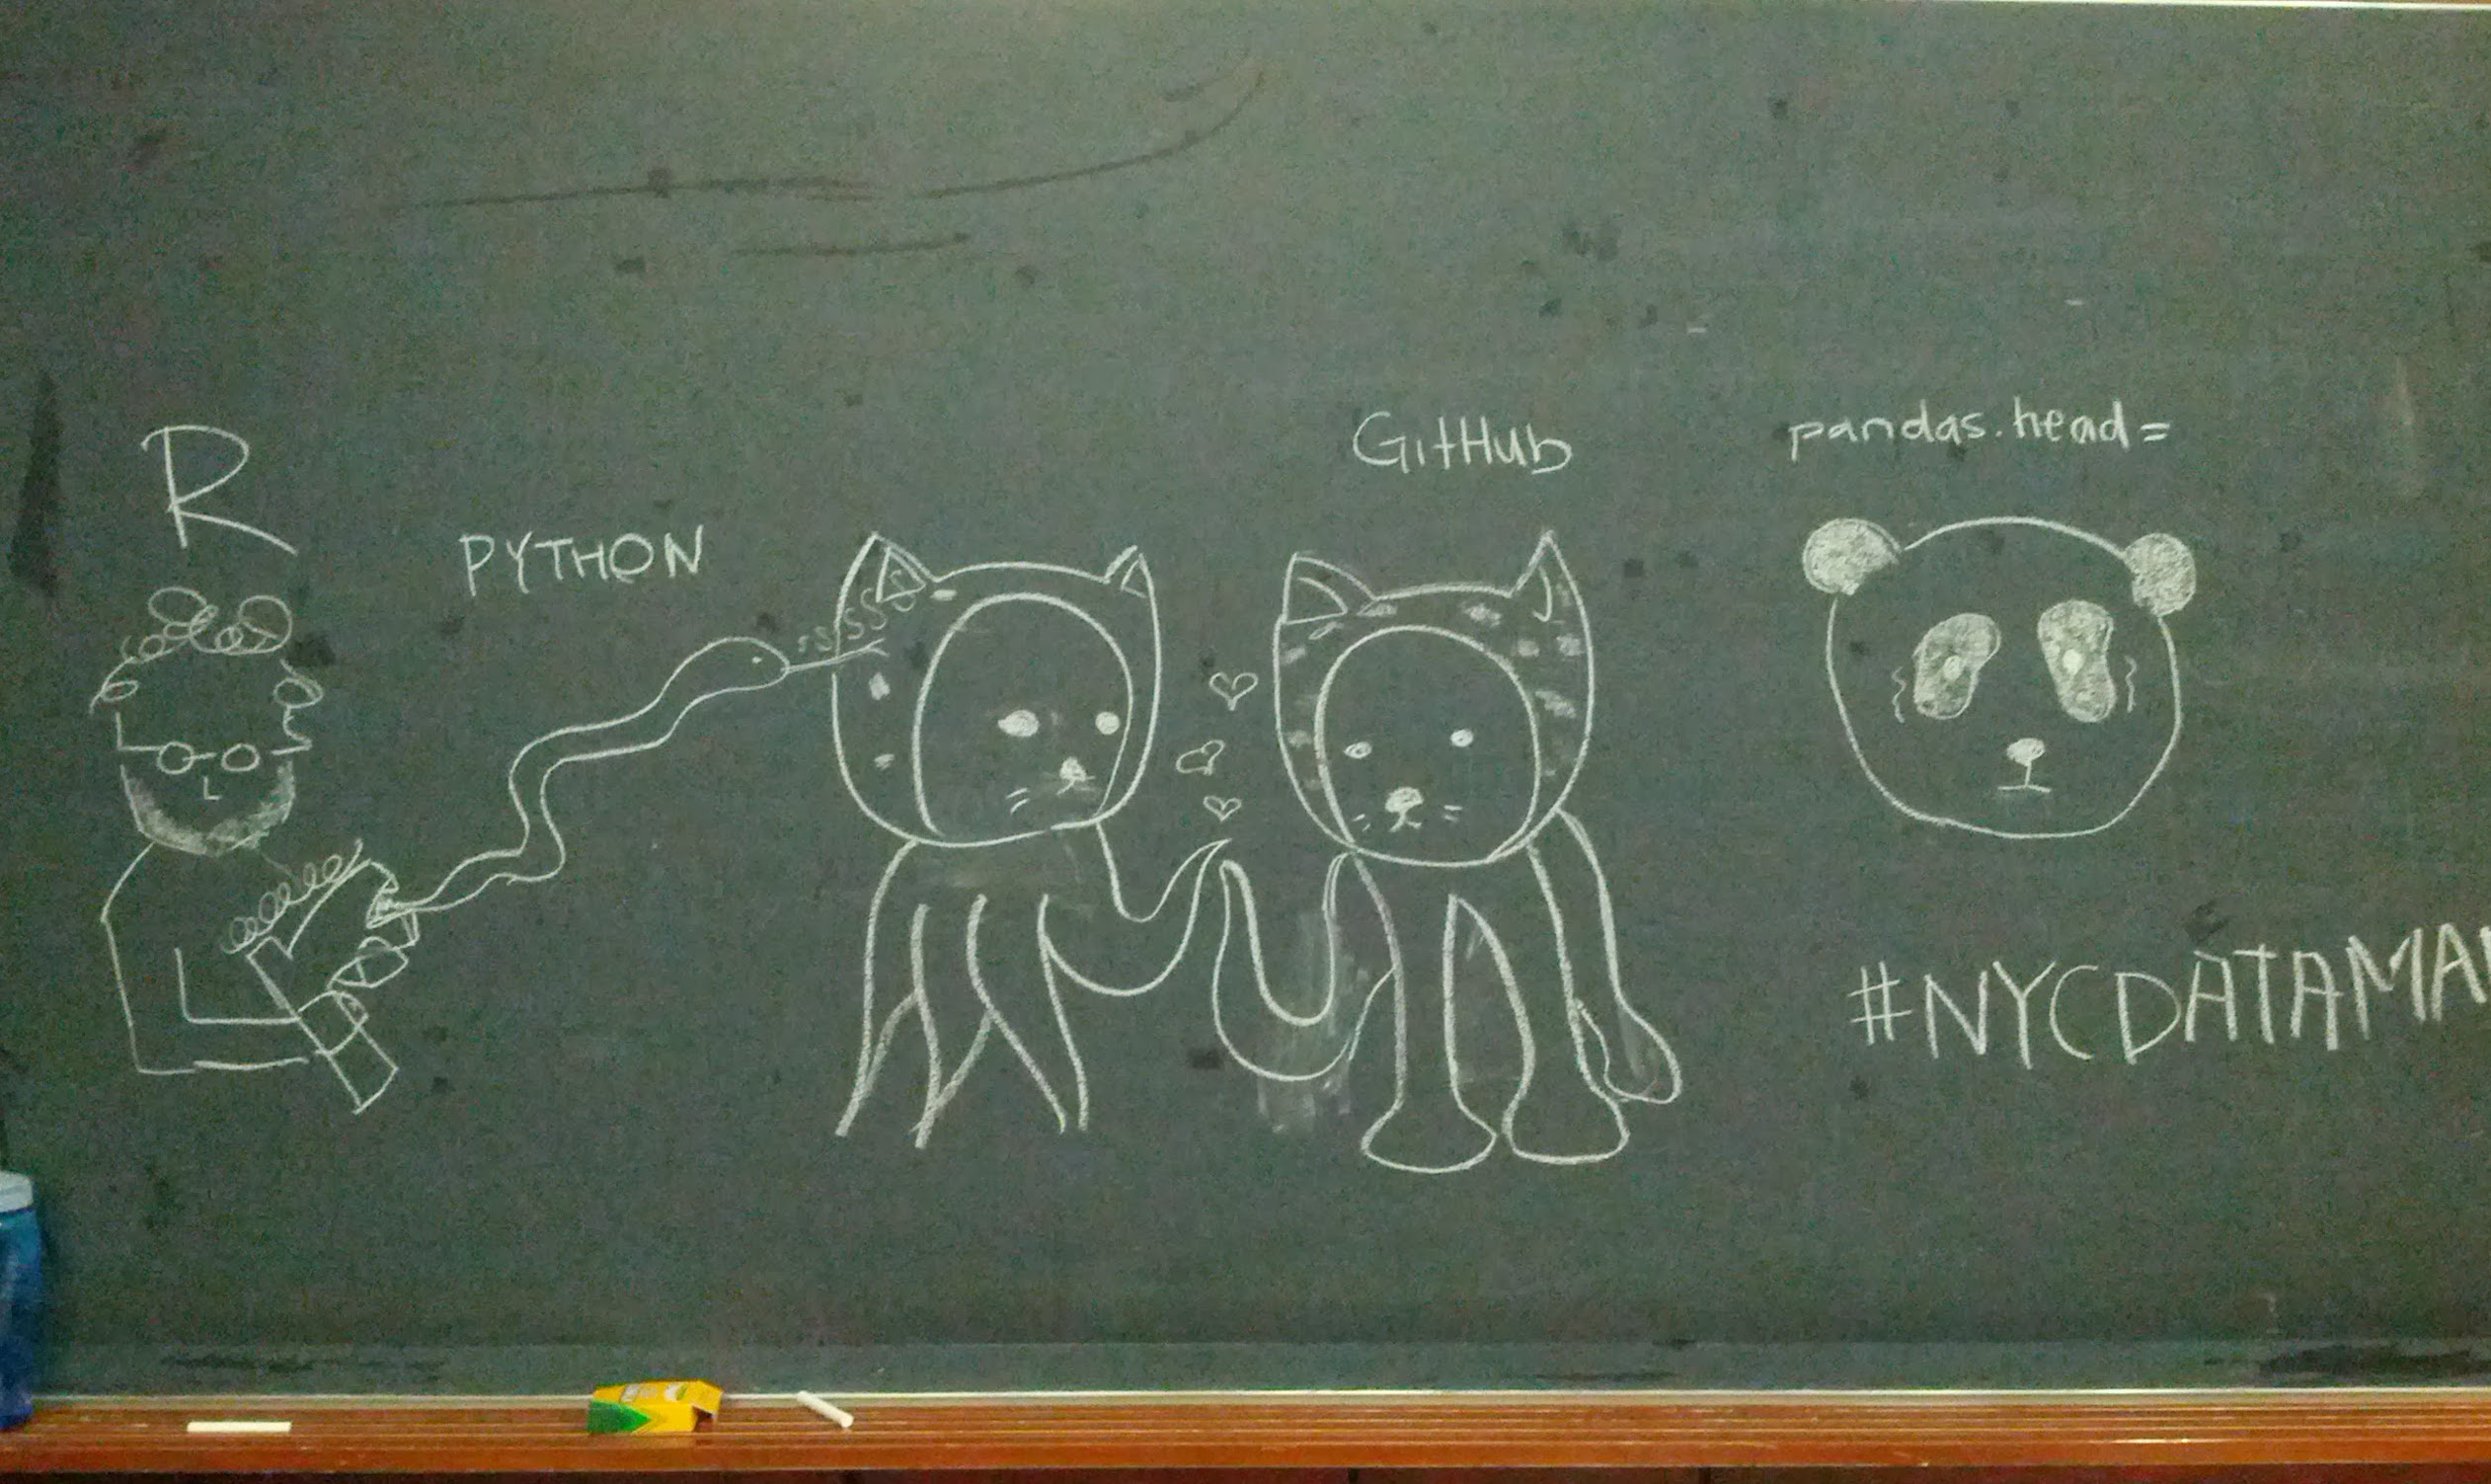 R
PYTHON
sssssss
GitHub
pandas.head=
#NYCDATAMA